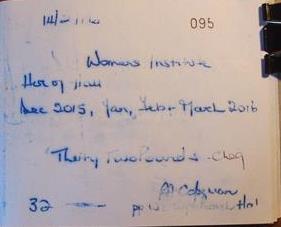 095
Womens Institute
Hire of Hall
Dec 2015, Jan, Feb + March 2016
Thirty Two Pounds - Chq
32 —
pp